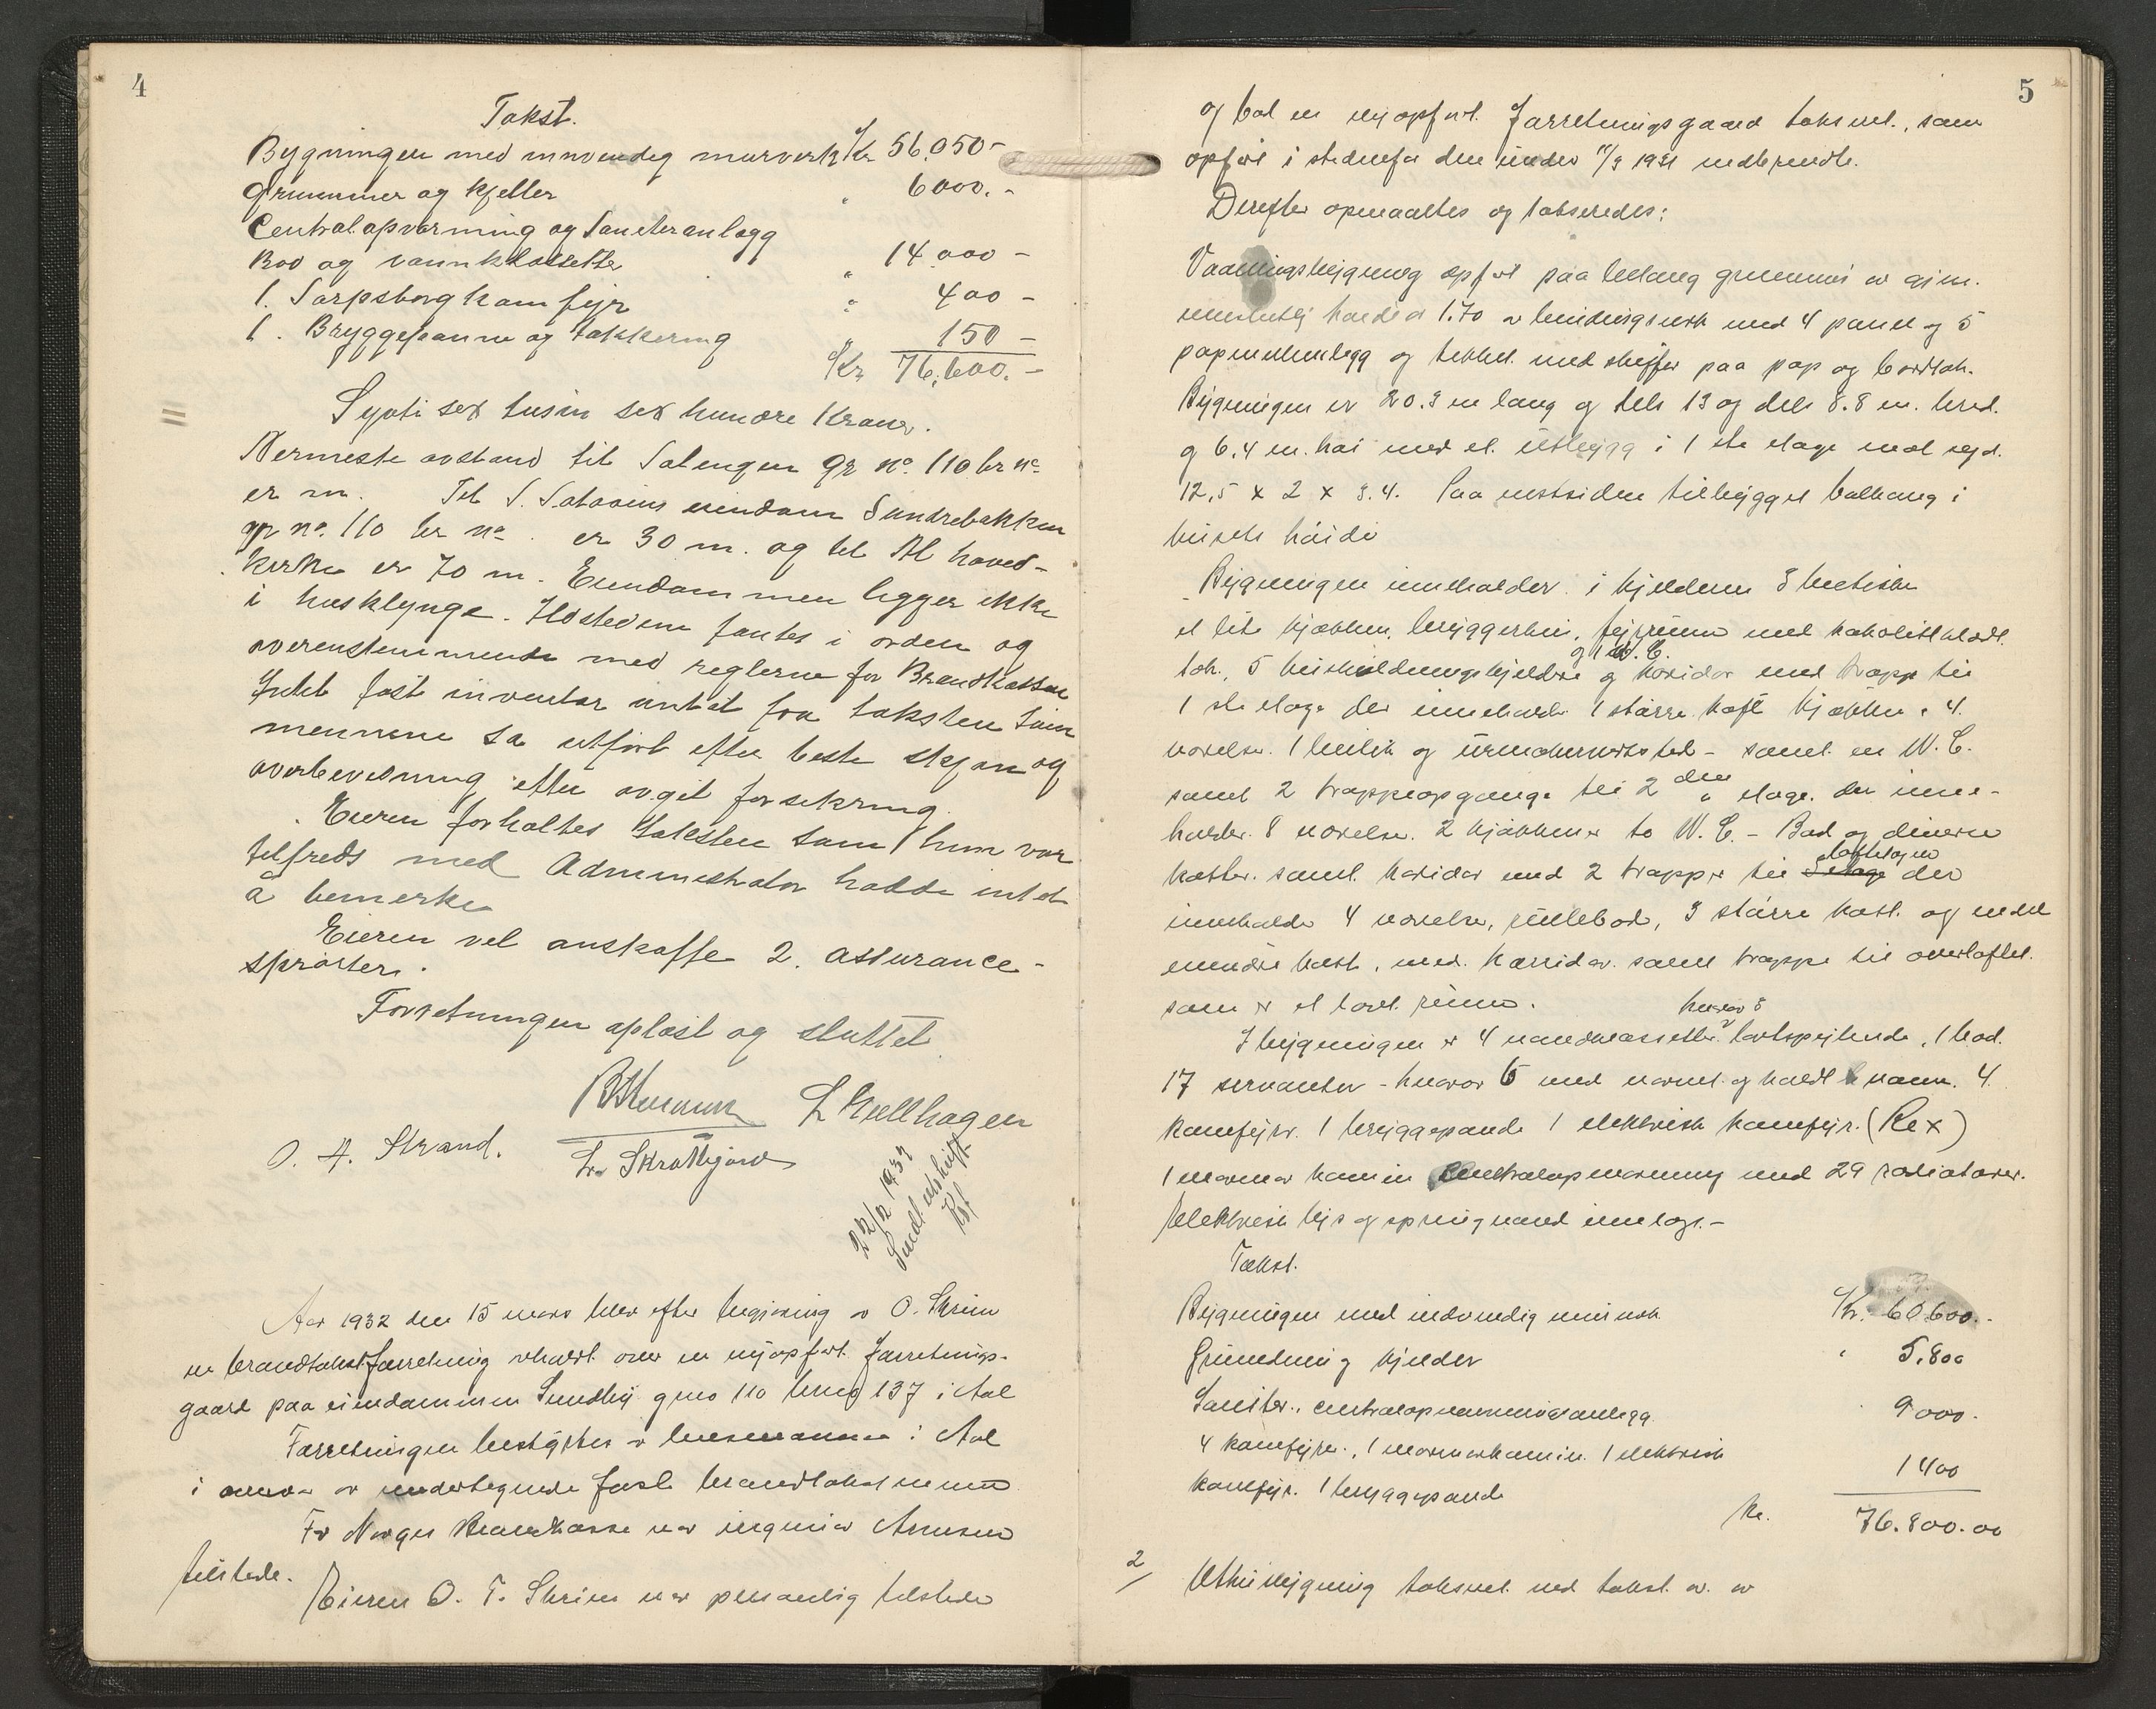 4
Takst.
Bygningen med innvendig murverk Kr 56,050-
Grunnmur og Kjeller " 6000.-
Centralopvarming og Saniteranlegg
Bad og vannklossetter " 14000 -
1. Sarpsborg komfyr " 400 -
1. Bryggepanne og takkering " 150 -
Kr 76,600.-
Sytti sex tusin sex hundre Kroner.
Nermeste avstand til Solengen gr no. 110 br no
er m. Til S. eiendom Sundrebakken
gr no. 110 br no. er 30 m. og til Ål hoved-
kirke er 70 m. Eiendommen ligger ikke
i husklynge. Ildstedene fantes i orden og
overenstemmende med reglerne for Brandkassen
Intet fast inventar untat fra taksten som
mennene sa utført efter beste skjøn og
overbevisning efter avgit forsikring.
Eieren forholtes taksten som hun var
tilfreds med Administrator hadde intet
å bemerke
Eieren vil anskaffe 2. assurance-
sprøiter.
Forretningen oplæst og sluttet
L Gullhagen
O. H. Strand. L. Skrattegard
22/2 1934
Sendt utskrift
Aar 1932 den 15 mars blev efter begjæring av O. Skrim
en brandtakstforretning avholdt over en nyopført Forretnings-
gaard paa eiendommen Sundby gno 110 bno 137 i Aal
Forretningen bestyrtes av lensmannen i Aal
i av undertegnede faste brandtakstmenn
For Norges Brandkasse var ingeniør Arnesen
tilstede.
Eieren O. T. Skrim var personlig tilstede
5
og bad en nyopført Forretningsgaard taksert, som
opført i stedenfor den under 11/9 1931 nedbrendte.
Derefter opmaaltes og takseredes:
Vaaningsbygning opført paa grunnmur av gjen.
høide a 1.70 av bindingsverk med 4 panel og 5
papmellemlegg og tekket med skiffer paa pap og bordtak.
Bygningen er 20.3 m lang og dels 13 og dels 8.8 m. bred.
og 6.4 m. høi med et utbygg i 1ste etage
12,5 x 2 x 3.4. Paa østsiden tilbygget balkong i
husets høide
Bygningen inneholder i kjelderen 3 butikker
et lite kjøkken, bryggerhus, fyrrum med
tak, 5 husholdningskjeldere og koridor med trapp til
og 1 W.C.
1ste etage der inneholder 1 større kafe kjøkken, 4
værelser. 1 butik og urmakerversted - samt en W.C.
samt 2 trappeopgange til 2 den etage. der inne-
holder. 8 værelser. 2 kjøkkener to W.C. - Bad og diverse
kotter. samt koridor med 2 trapper til 3 etage loftetagen der
inneholder 4 værelser, rullebod, 3 større kott. og endel
mindre kott, med korridor. samt trappe til overloftet.
som er et tørt rum.
I bygningen er 4 vandklosetter hvorav 3 bortspylende, 1 bad.
17 servanter - hvorav 6 med varmt og koldt vann. 4
komfyrer. 1 bryggepande 1 elektrisk komfyr. (Rex)
1 marmor kamin Centralopvarming med 29 radiatorer.
Elektrisk lys og springvand innlagt.-
Takst.
Bygningen med indvendig murverk Kr. 60600.-
Grundmur og kjelder " 5.800
Sanitær-, centralopvarmningsanlegg 9000.
4 komfyrer., 1 marmorkamin. 1 elektrisk
komfyr. 1 bryggepande 1400
Kr. 76.800.00
2/ Uthusbygning taksert ved takst av